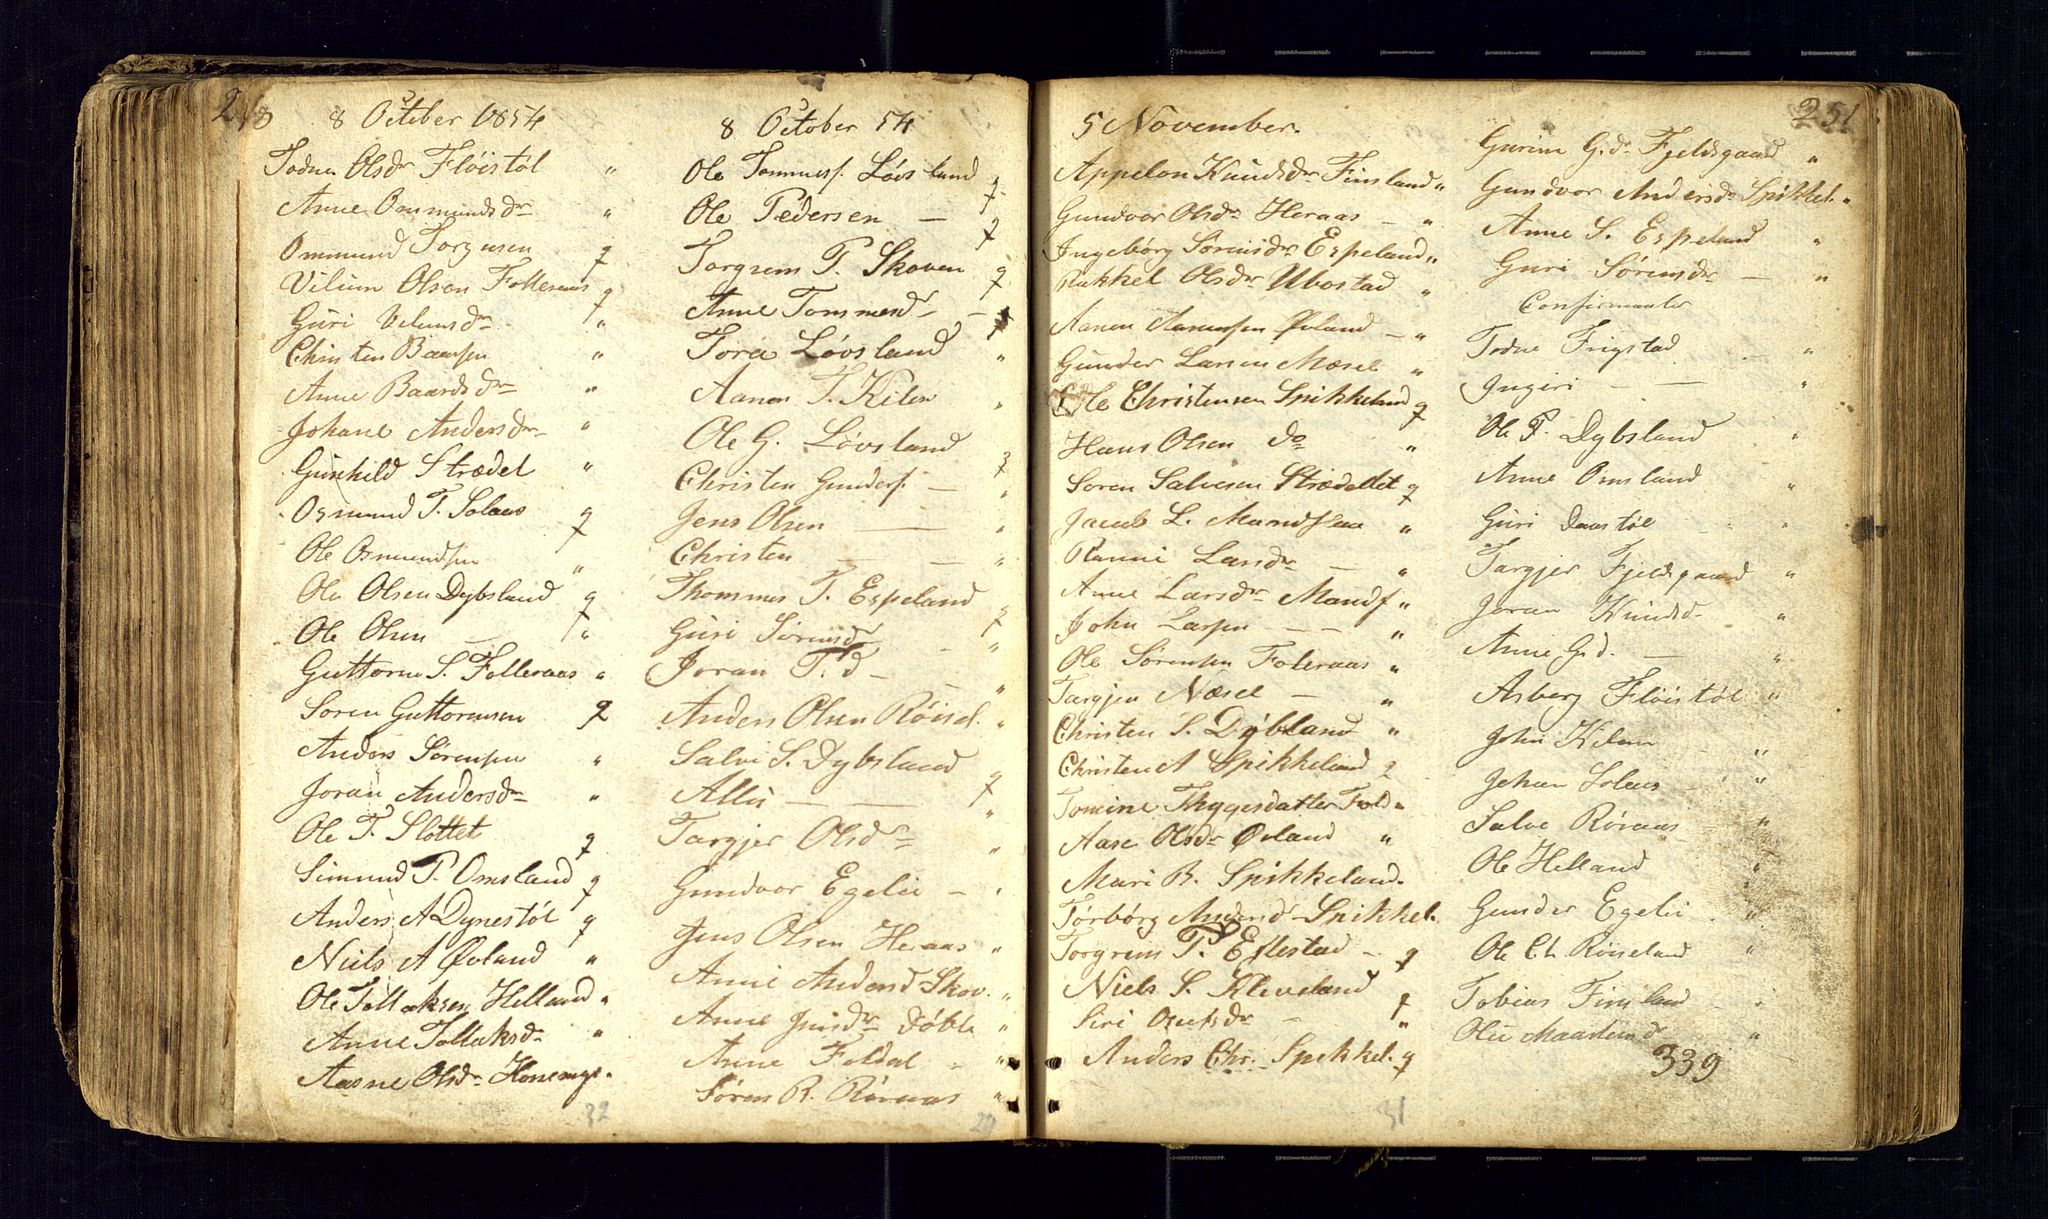 8 October 1854
Todne Olsdr Flöistöl "
Anne Ommundsdr "
Ommund Torgusen q
Vilium Olsen Folleraas q
Guri Veliumsdr "
Christen Baarsen "
Anne Baardsdr "
Johane Andersdr "
Gunhild Strædet "
Osmund T. Solaas q
Ole Osmundsen "
Ole Olsen Dybsland q
Ole Olsen — "
Guttorm S. Folleraas "
Soren Guttormsen q
Anders Sörensen "
Joran Andersdr "
Ole T. Slottet q
Simund P. Omsland q
Anders A Dynestöl q
Niels A Øvland "
Ole Tollaksen Helland "
Anne Tollaksdr "
Aasne Olsdr
32
8 October 54
Ole Tommesf. Løvsland q
Ole Pedersen — q
Torgrem P. Skoven q
Anne Tommesdr — q
Tora Lövsland "
Aanon T. Kilen "
Ole G. Lövsland q
Christen Gundersf. — "
Jens Olsen — "
Christen — — "
Thommes T. Espeland q
Guri Sörensdr — "
Joran T.d — — "
Anders Olsen Röisel. "
Salvi S. Dybsland q
— — "
Targjer Olsdr "
Gundvor Egelie — "
Jens Olsen Heraas "
Anne Andersd Skov. "
Anne Jensdr "
Anne Foldal "
Sören R. Röraas "
29
5 November.
Appelon Knudsdr Finsland "
Gundvor Olsdr Heraas — "
Ingebörg Sörensdr Espeland "
Rakkel Olsdr Ubostad "
Aanon Aanensen Øvland — "
Gunder Larsen Mæsel "
Ole Christensen Spikkeland q
Hans Olsen do "
Soren Salvesen Strædettet q
Jacob L. Mandflaa "
Ranni Larsdr — "
Anne Larsdr Mandf "
John Larsen — — "
Ole Sörensen Foleraas "
Targjen Næsel — "
Christen S. Dybland "
Christen A Spikkeland q
Tomine Thygesdatter Fold "
Aase Olsdr Øvland "
Mari B. Spikkeland.
Törbörg Andersd Spikkel.
Torgrem P. Eftestad — q
Niels S. Kleveland q
Siri — "
Anders Chr. Spikkel. q
31
251
Gurine G.dr Fjeldsgaard "
Gundvor Andersdr Spikkel. "
Anne S. Espeland "
Guri Sörensdr — "
Confirmanter
Todne Frigstad "
Ingeri — — "
Ole P. Dybsland "
Anne Omsland "
Guri Daastöl "
Targjer Fjeldsgaard "
Joran Knudsd "
Anne G.d. — "
Asberg Flöistöl "
John Kilen "
Johan Soleas "
Salve Röraas "
Ole Helland "
Gunder Egelie "
Ole Ch Röiseland "
Tobias Finsland "
"
339